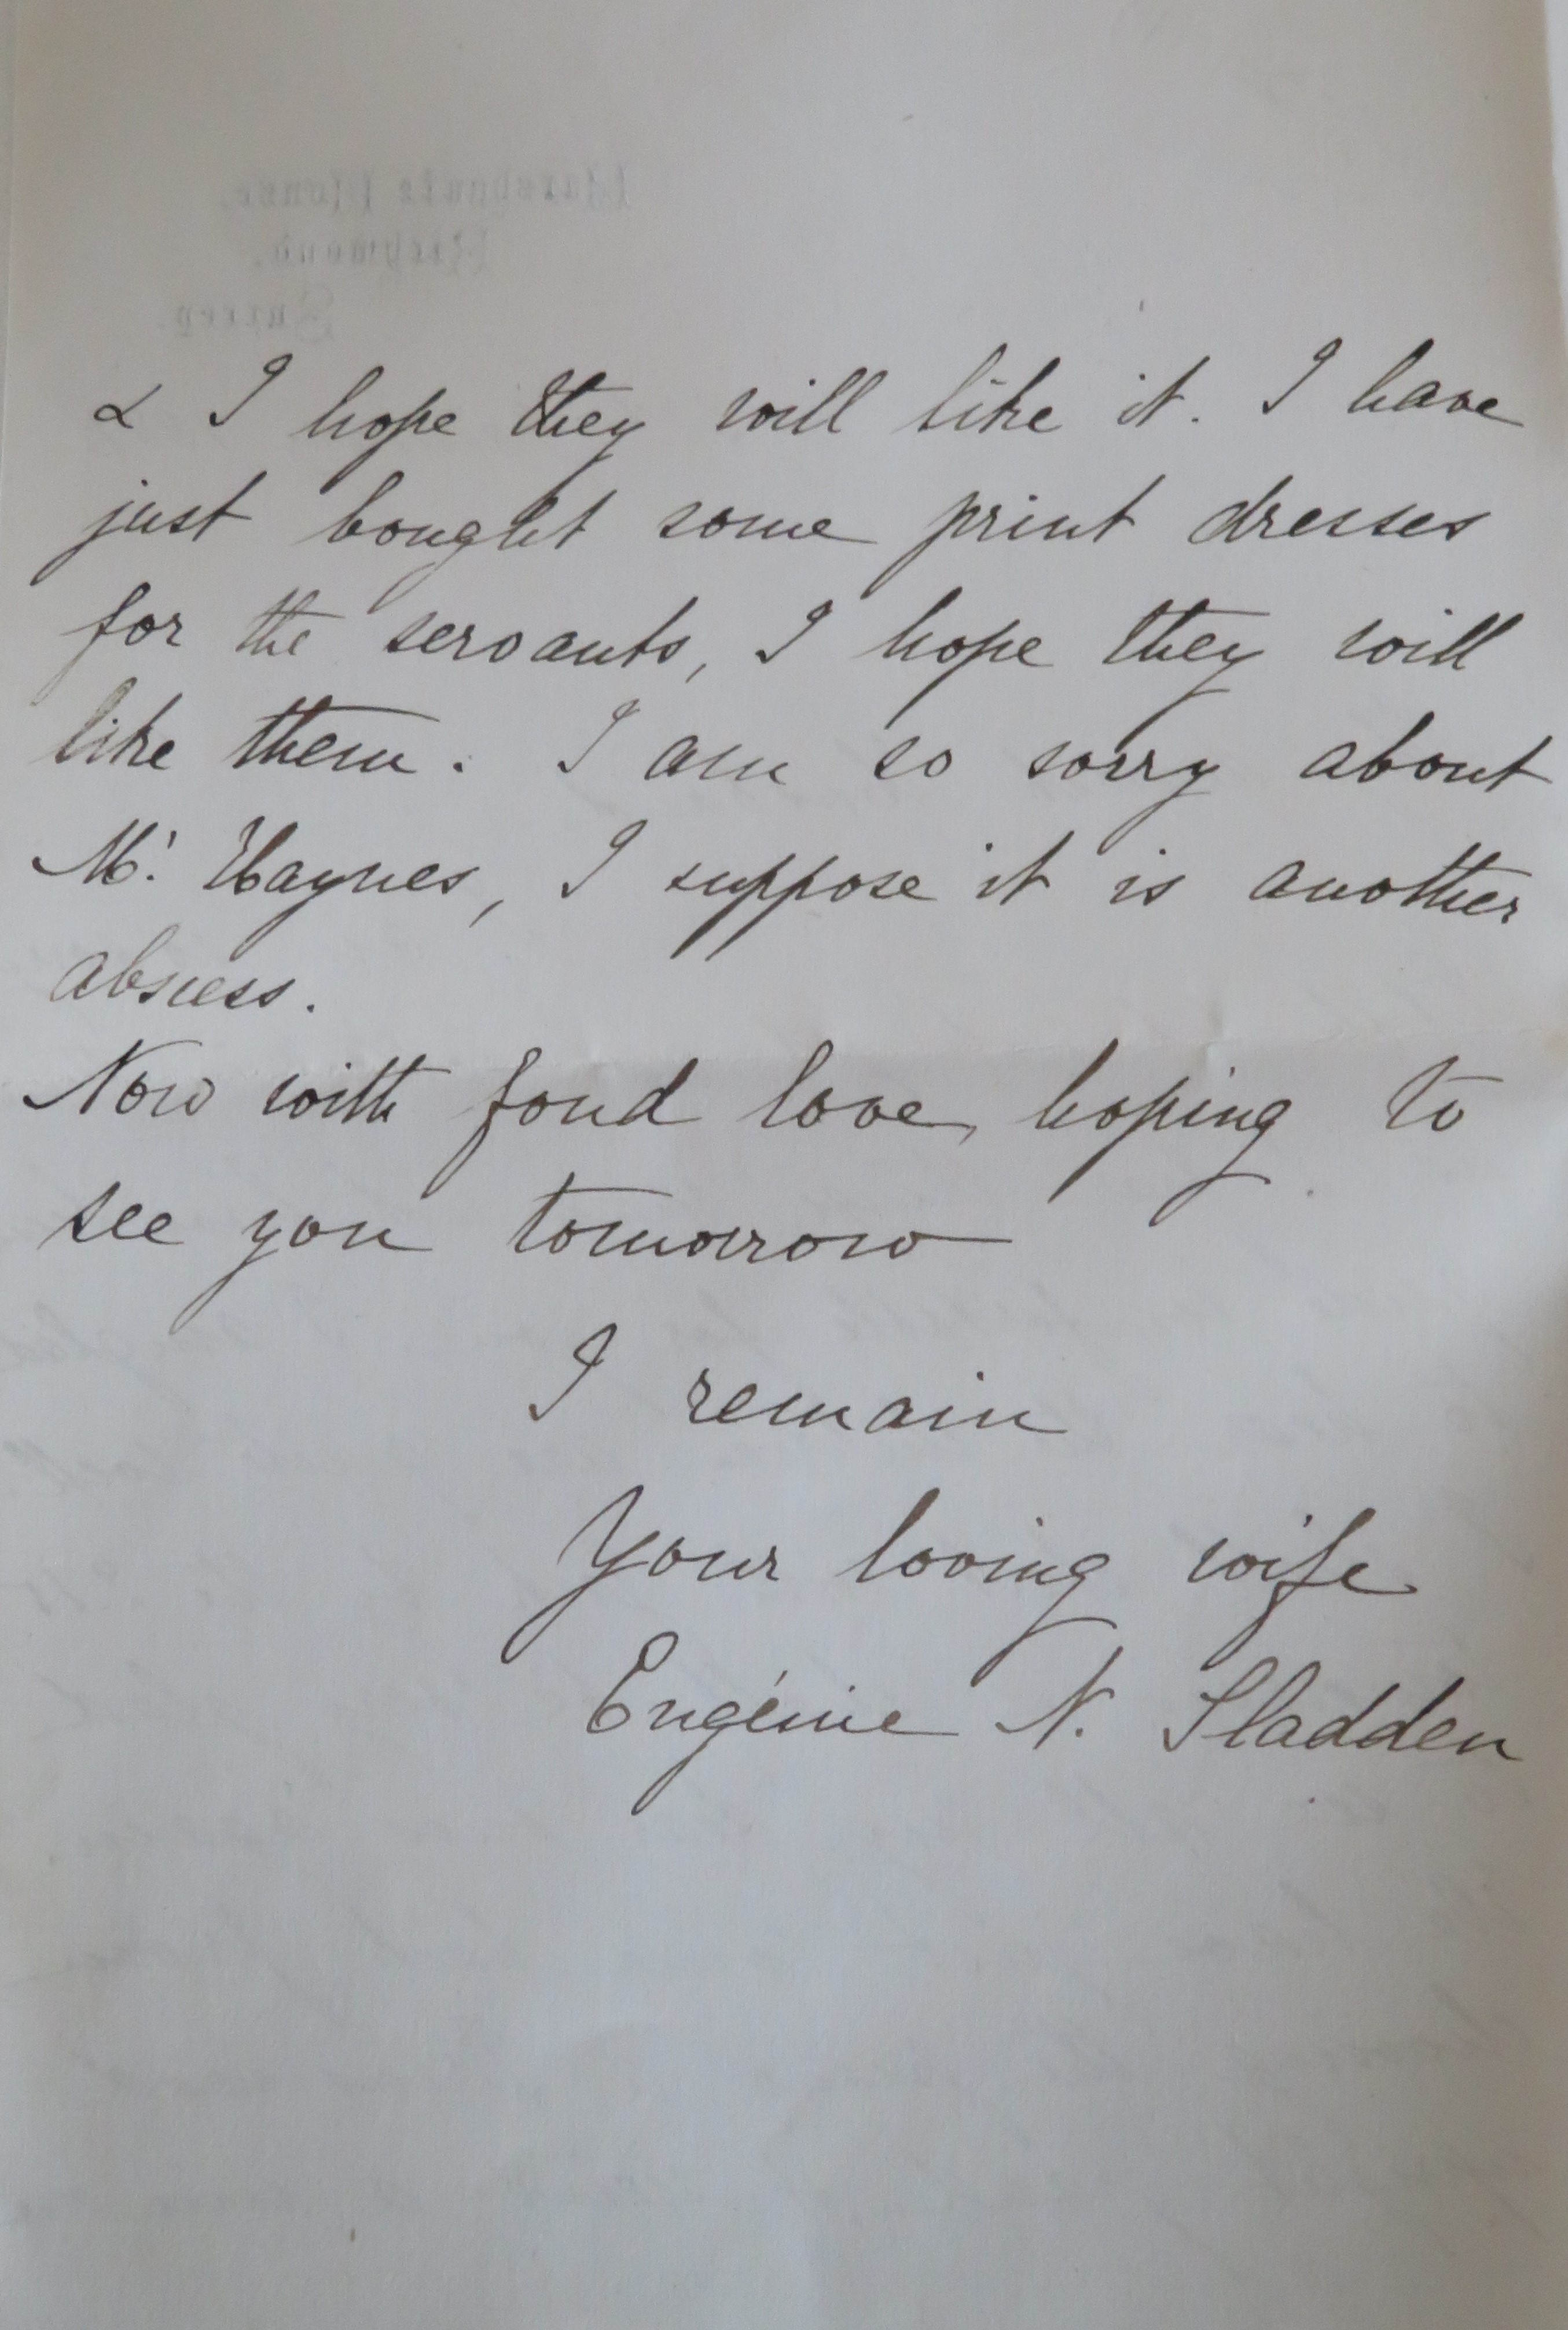 Marshgate House.
Richmond.
Surrey.
& I hope they will like it. I have
just bought some print dresses
for the servants, I hope they will
like them. I am so sorry about
Mr. Haynes, I suppose it is another
abscess.
Now with fond love, hoping to
see you tomorrow
I remain
Your loving wife
Eugénie N. Sladden